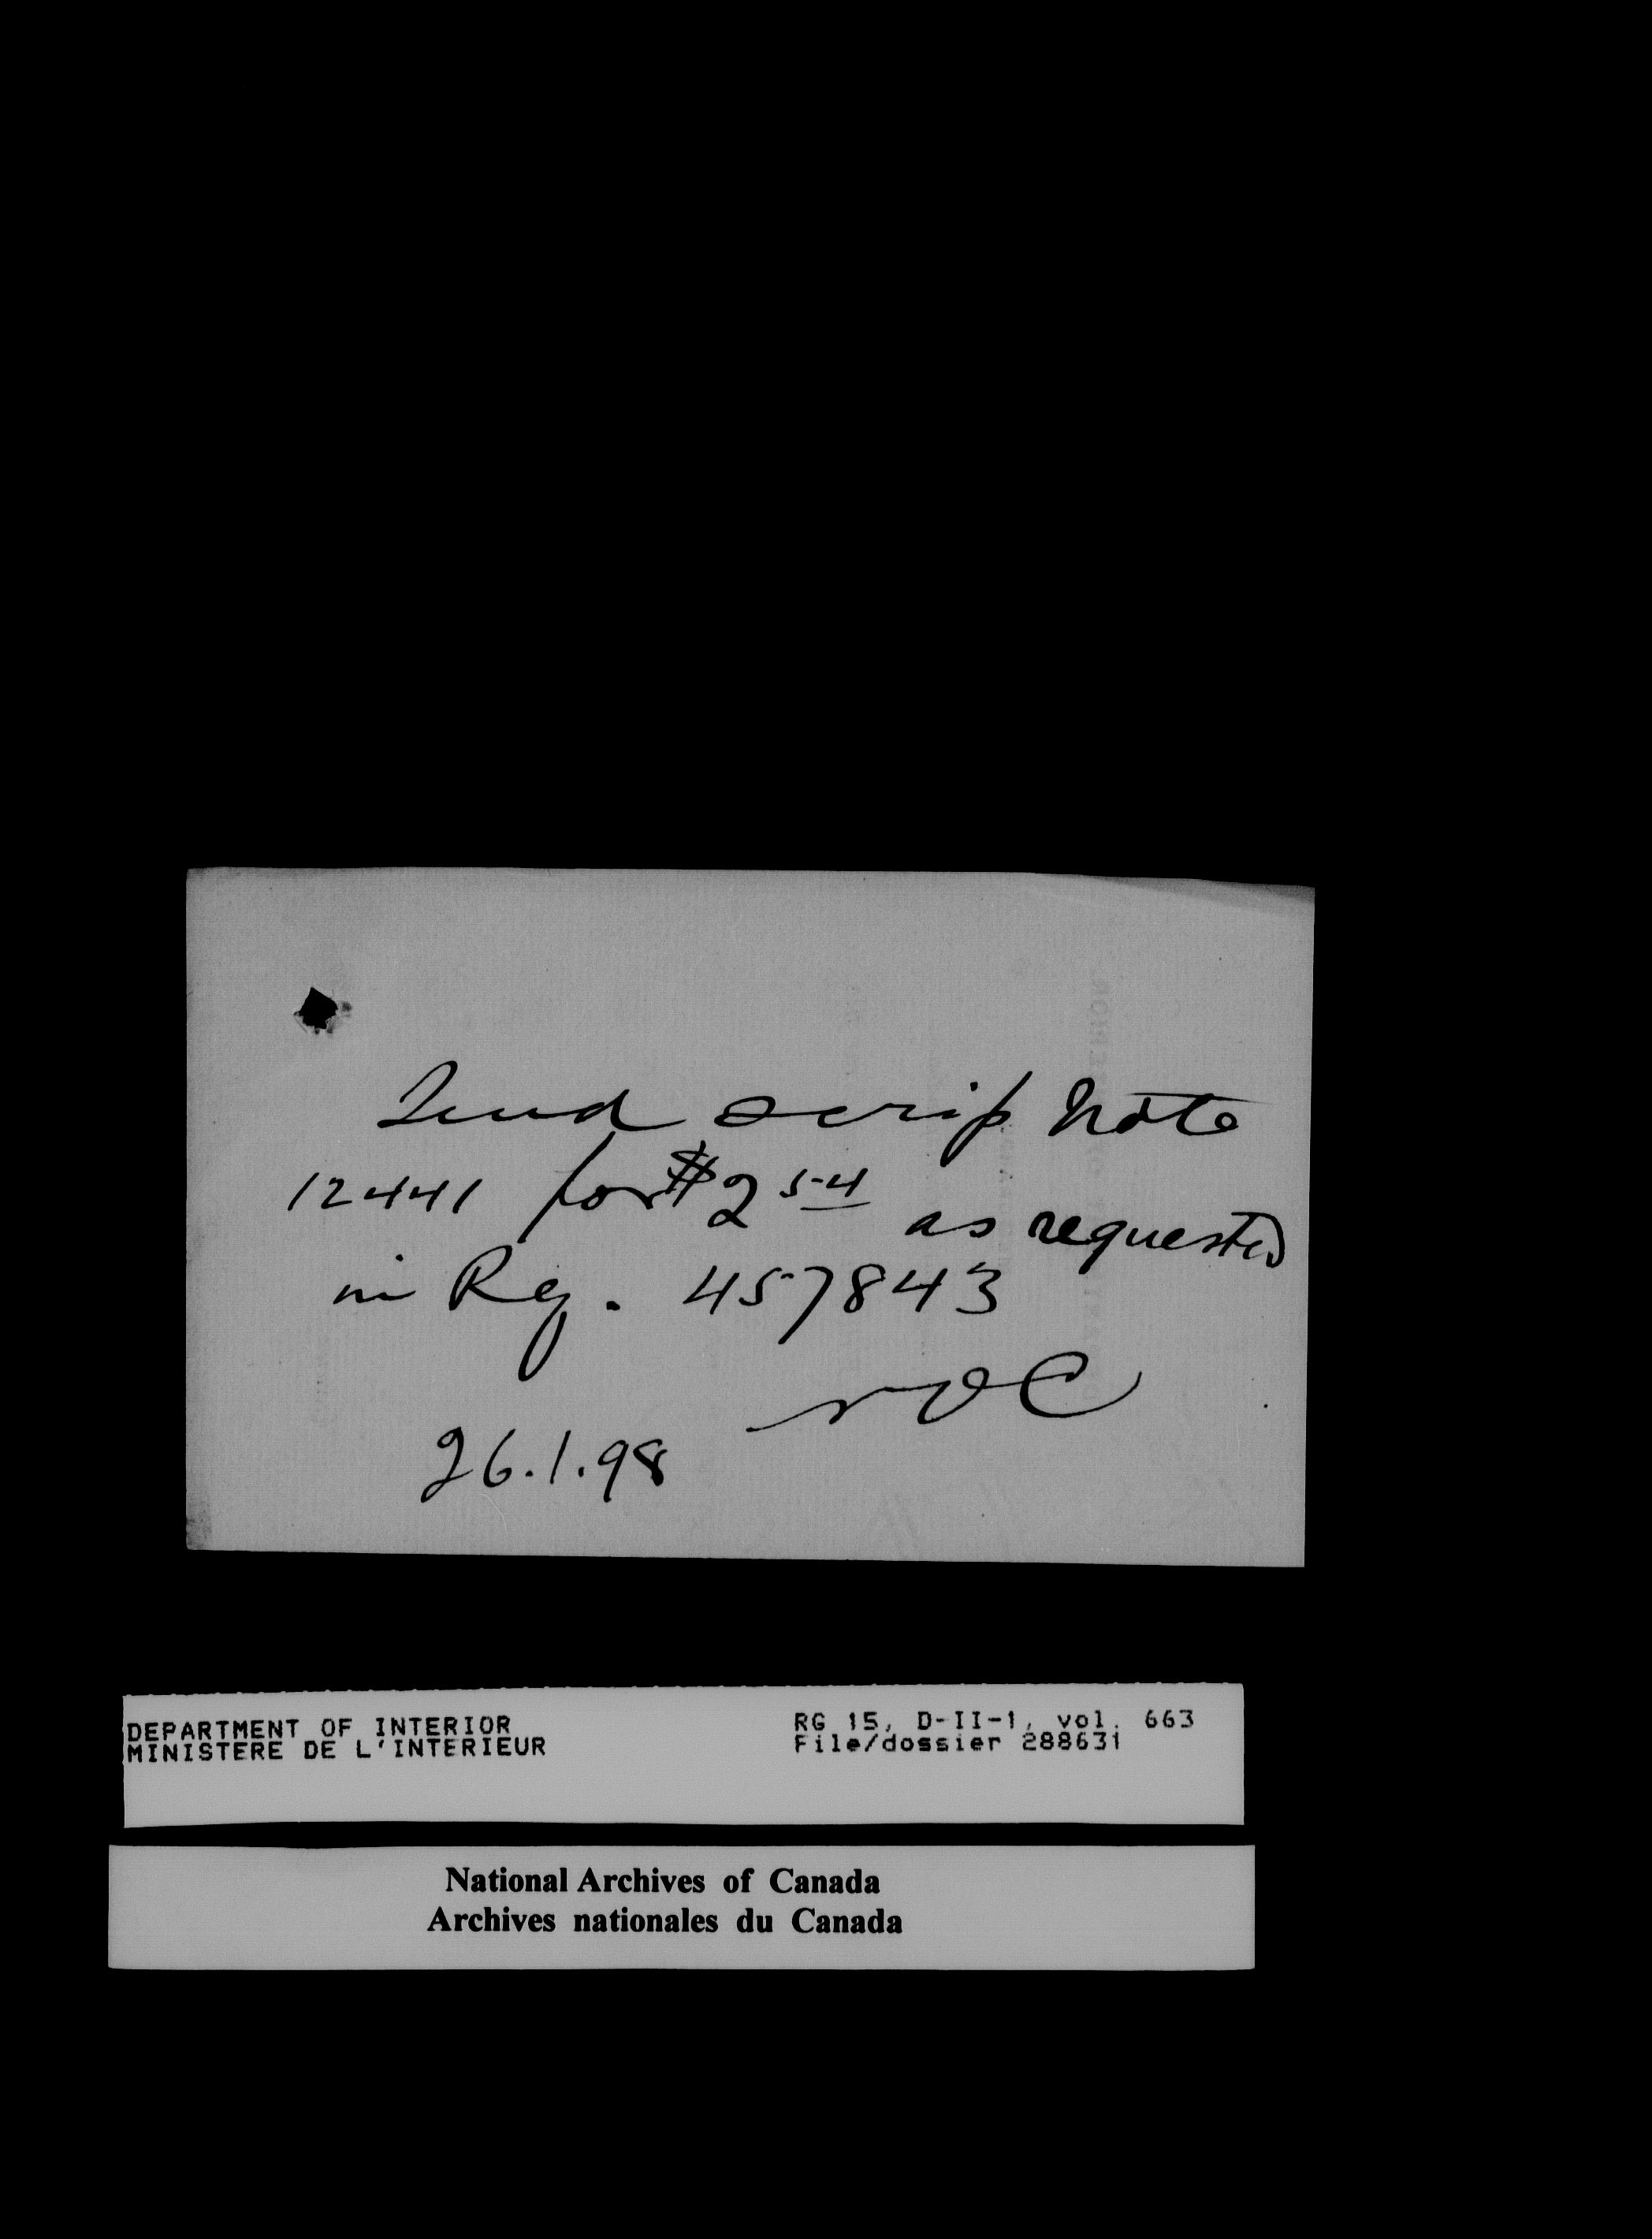 Send scrip Note
12441 for $2 54 as requested
in Reg. 457843
26.1.98
DEPARTMENT OF INTERIOR
MINISTERE DE L'INTERIEUR
RG 15, D-II-1, vol. 663
File/dossier 288631
National Archives of Canada
Archives nationales du Canada